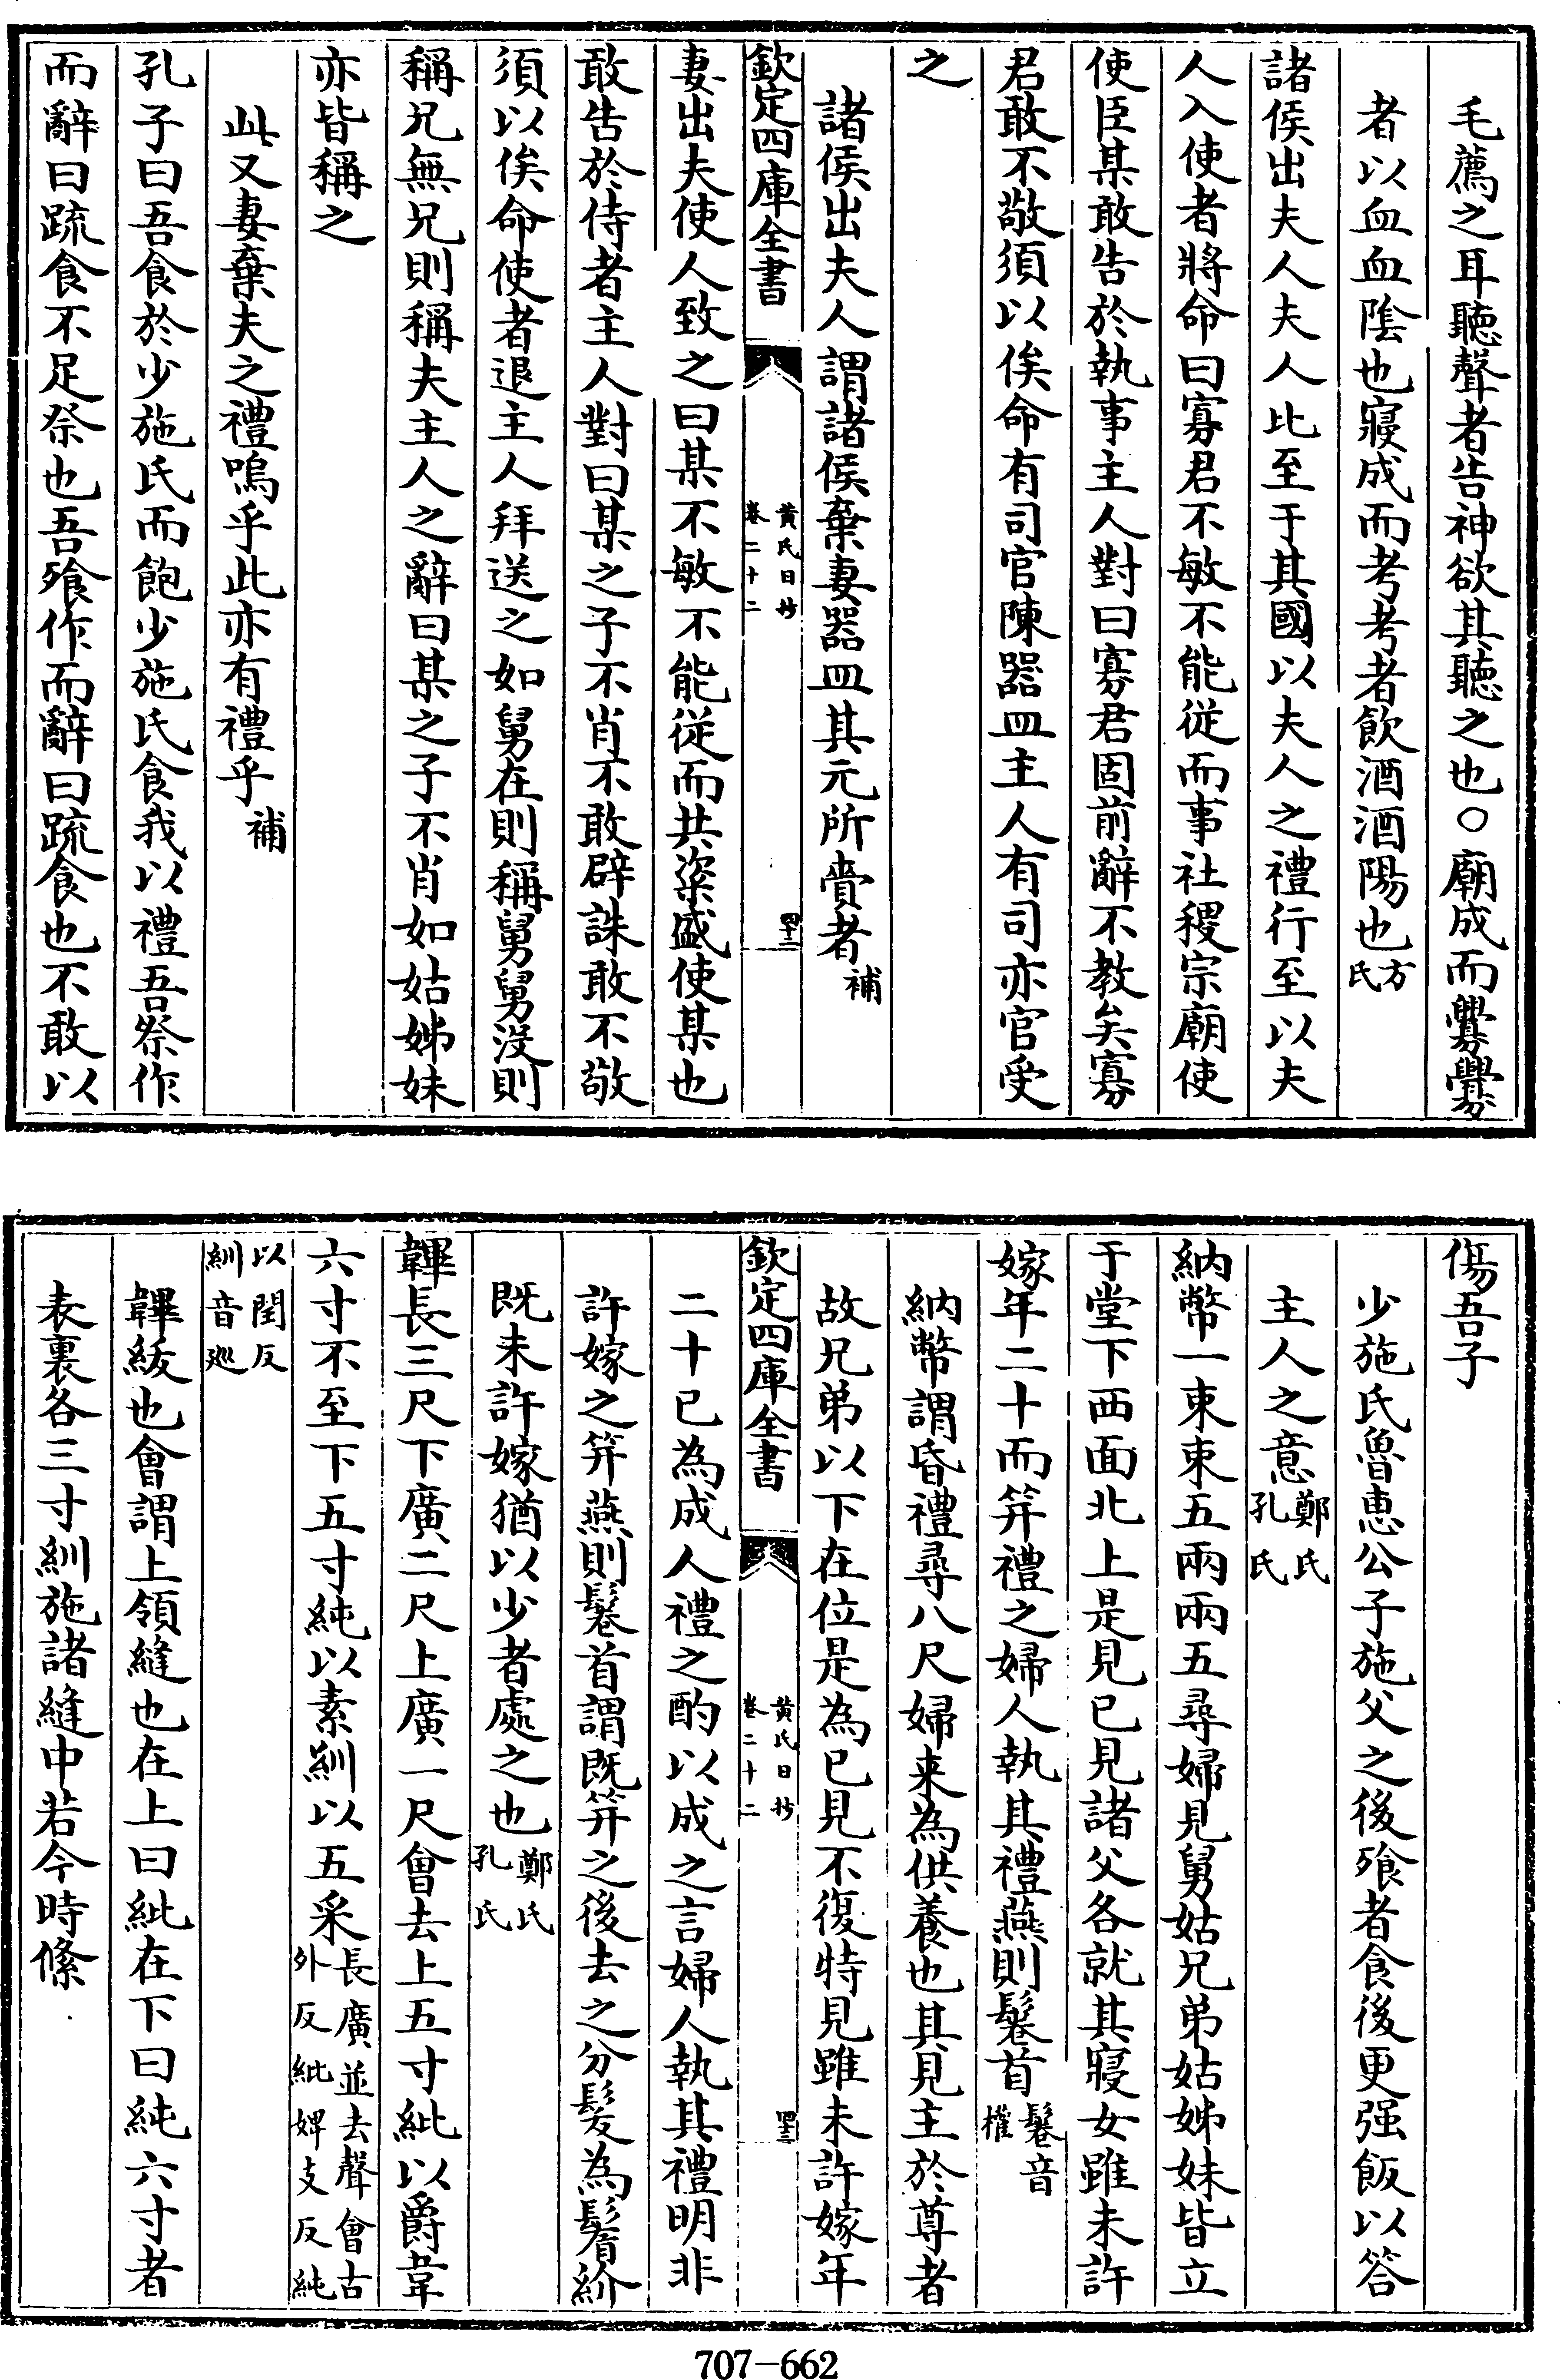 毛薦之耳聽聲者告神欲其聽之也○廟成而釁釁
者以血血陰也寢成而考考者飲酒酒陽也方氏
諸侯出夫人夫人比至于其國以夫人之禮行至以夫
人入使者將命曰寡君不敏不能從而事社稷宗廟使
使臣某敢告於執事主人對曰寡君固前辭不教矣寡
君敢不敬須以俟命有司官陳器皿主人有司亦官受
之
諸侯出夫人謂諸侯棄妻器皿其元所賫者補
欽定四庫全書
黄氏日抄
卷二十二
四十三
妻出夫使人致之曰某不敏不能從而共粢盛使某也
敢告於侍者主人對曰某之子不肖不敢辟誅敢不敬
須以俟命使者退主人拜送之如舅在則稱舅舅沒則
稱兄無兄則稱夫主人之辭曰某之子不肖如姑姊妹
亦皆稱之
此又妻棄夫之禮嗚乎此亦有禮乎補
孔子曰吾食於少施氏而飽少施氏食我以禮吾祭作
而辭曰疏食不足祭也吾飱作而辭曰疏食也不敢以
傷吾子
少施氏魯惠公子施父之後飱者食後更强飯以答
主人之意鄭氏孔氏
納幣一束束五兩兩五尋婦見舅姑兄弟姑姊妹皆立
于堂下西面北上是見已見諸父各就其寢女雖未許
嫁年二十而笄禮之婦人執其禮燕則鬈首鬈音權
納幣謂昏禮尋八尺婦来為供養也其見主於尊者
故兄弟以下在位是為已見不復特見雖未許嫁年
欽定四庫全書
黄氏日抄
卷二十二
四十三
二十已為成人禮之酌以成之言婦人執其禮明非
許嫁之笄燕則鬈首謂既笄之後去之分髮為鬌紒
既未許嫁猶以少者處之也鄭氏孔氏
韠長三尺下廣二尺上廣一尺會去上五寸紕以爵韋
六寸不至下五寸純以素紃以五采長廣並去聲會古外反紕婢支反純
以閏反紃音巡
韠紱也會謂上領縫也在上曰紕在下曰純六寸者
表裏各三寸紃施諸縫中若今時絛
707-662